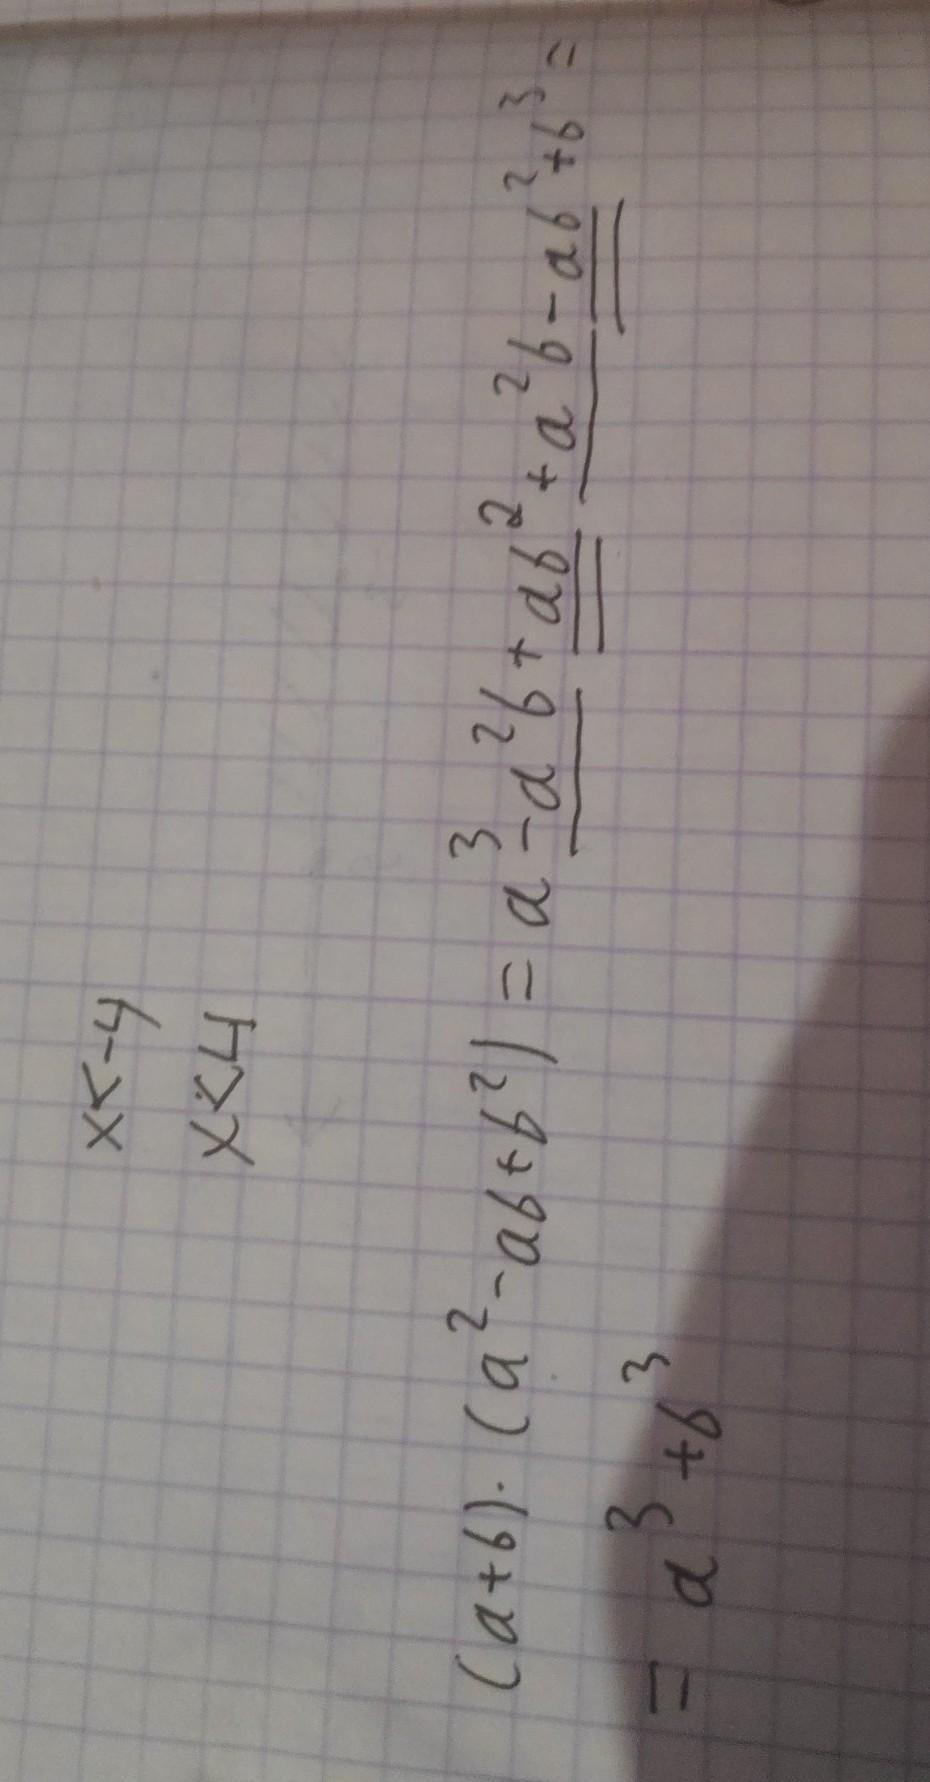 x<-4
x<4
(a+b)·(a²-ab+b²)=a³-a²b+ab²+a²b-ab²+b³=
=a³+b³